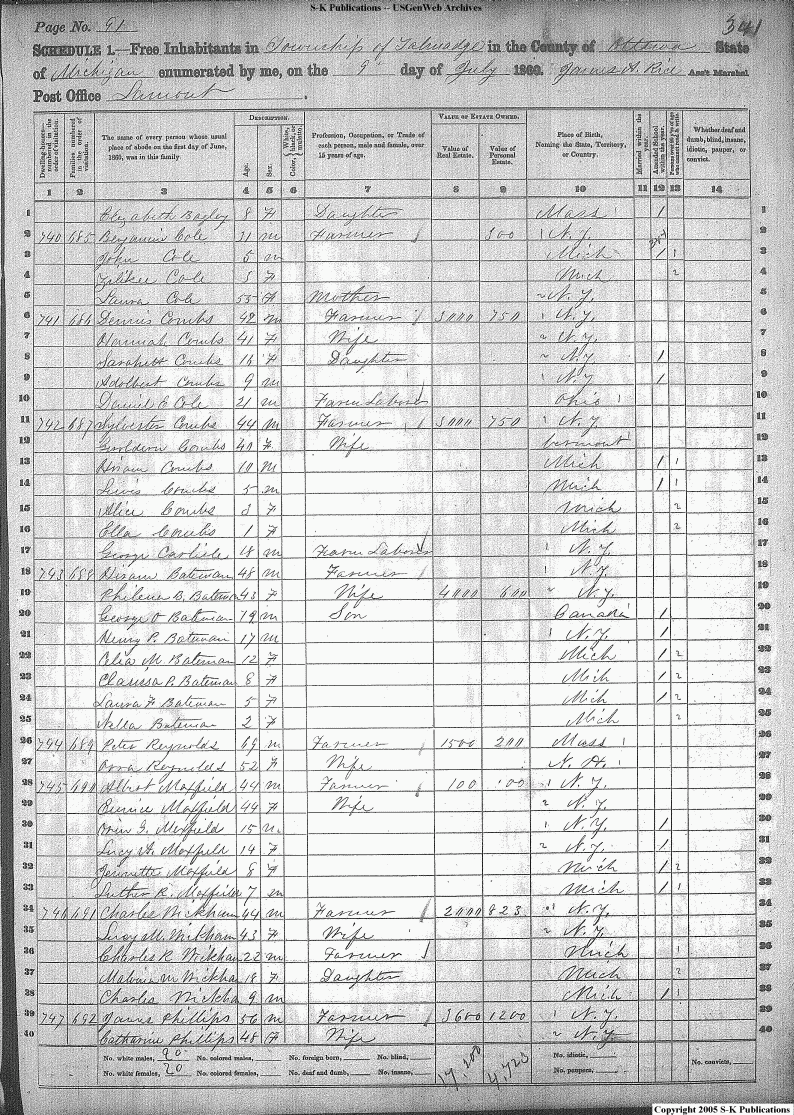 S-K Publications -- USGenWeb Archives
Page No. 91
341
SCHEDULE 1.—Free Inhabitants in Township of Talmadge in the County of Ottawa State
of Michigan enumerated by me, on the 9th day of July 1860. James H. Rice Ass't Marshal
Post Office Lamont.
Dwelling-houses—numbered in the order of visitation.
Families numbered in the order of visitation.
The name of every person whose usual place of abode on the first day of June, 1860, was in this family
DESCRIPTION.
Age.
Sex.
Color, White, black, or mulatto.
Profession, Occupation, or Trade of each person, male and female, over 15 years of age.
VALUE OF ESTATE OWNED.
Value of Real Estate.
Value of Personal Estate.
Place of Birth, Naming the State, Territory, or Country.
Married within the year.
Attended School within the year.
Whether deaf and dumb, blind, insane, idiotic, pauper, or convict.
1 2 3 4 5 6 7 8 9 10 11 12 13 14
1 Elizabeth Bagley 8 F Daughter Mass 1 1
2 740 685 Benjamin Cole 31 m Farmer 300 N.Y. 2
3 John Cole 5 m Mich 1 1 3
4 Cole 3 F Mich 2 4
5 Laura Cole 55 F Mother N.Y. 5
6 741 686 Dennis Combs 42 m Farmer 3000 750 N.Y. 6
7 Hannah Combs 41 F Wife N.Y. 7
8 Sarahett Combs 16 F Daughter N.Y. 1 8
9 Adelbert Combs 9 m N.Y. 1 9
10 Daniel E Cole 21 m Farm Laborer Ohio 10
11 742 687 Sylvester Combs 44 m Farmer 3000 750 N.Y. 11
12 Combs 40 F Wife Vermont 12
13 Hiram Combs 10 m Mich 1 1 13
14 Lewis Combs 5 m Mich 1 1 14
15 Alice Combs 3 F Mich 2 15
16 Ella Combs 1 F Mich 2 16
17 George Carlisle 18 m Farm Laborer N.Y. 17
18 743 688 Hiram Bateman 48 m Farmer N.Y. 18
19 Philena B. Bateman 43 F Wife 4000 600 N.Y. 19
20 George O Bateman 19 m Son Canada 1 20
21 Henry P. Bateman 17 m N.Y. 1 21
22 Celia M. Bateman 12 F Mich 1 2 22
23 Clarissa P. Bateman 8 F Mich 1 2 23
24 Laura F Bateman 5 F Mich 1 2 24
25 Nella Bateman 2 F Mich 2 25
26 744 689 Peter Reynolds 69 m Farmer 1500 200 Mass 26
27 Reynolds 52 F Wife N.H. 27
28 745 690 Albert Maxfield 44 m Farmer 100 100 N.Y. 28
29 Eunice Maxfield 44 F Wife N.Y. 29
30 Orin G. Maxfield 15 m N.Y. 1 30
31 Lucy A. Maxfield 14 F N.Y. 1 31
32 Jennette Maxfield 8 F Mich 1 2 32
33 Luther R. Maxfield 7 m Mich 1 1 33
34 746 691 Charles Wickham 44 m Farmer 2000 823 N.Y. 34
35 Lucy M. Wickham 43 F Wife N.Y. 35
36 Charles R Wickham 22 m Farmer Mich 1 36
37 Malvina M Wickha 18 F Daughter Mich 2 37
38 Charles Wickha 9 m Mich 1 1 38
39 747 692 James Phillips 56 m Farmer 3600 1200 N.Y. 39
40 Catharine Phillips 48 F Wife N.Y. 40
No. white males, 20 No. colored males, No. foreign born, No. blind, 17,200 4,723 No. idiotic, No. convicts,
No. white females, 20 No. colored females, No. deaf and dumb, No. insane, No. paupers,
Copyright 2005 S-K Publications